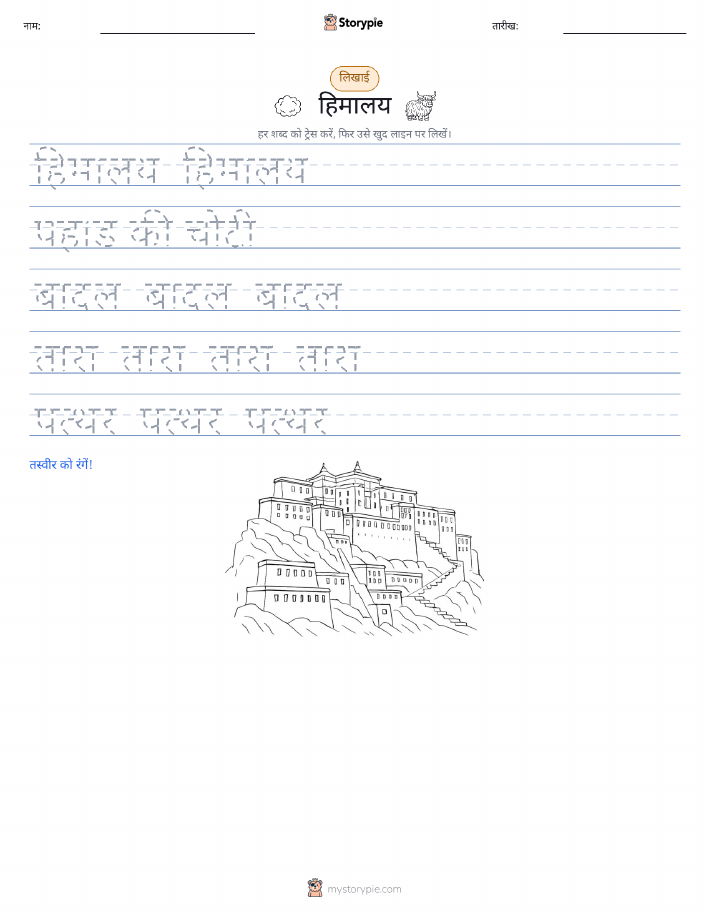 नाम:
Storypie
तारीख:
लिखाई
हिमालय
हर शब्द को ट्रेस करें, फिर उसे खुद लाइन पर लिखें।
हिमालय हिमालय
पहाड की चोटी
बादल बादल बादल
तारा तारा तारा तारा
पत्थर पत्थर पत्थर
तस्वीर को रंगें!
mystorypie.com